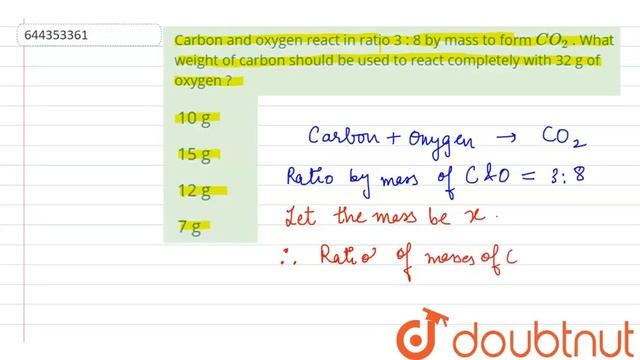 644353361
Carbon and oxygen react in ratio 3 : 8 by mass to form CO₂ . What
weight of carbon should be used to react completely with 32 g of
oxygen ?
10 g
15 g
12 g
7 g
Carbon + Oxygen → CO₂
Ratio by mass of C & O = 3 : 8
Let the mass be x .
∴ Ratio of masses of C
doubtnut